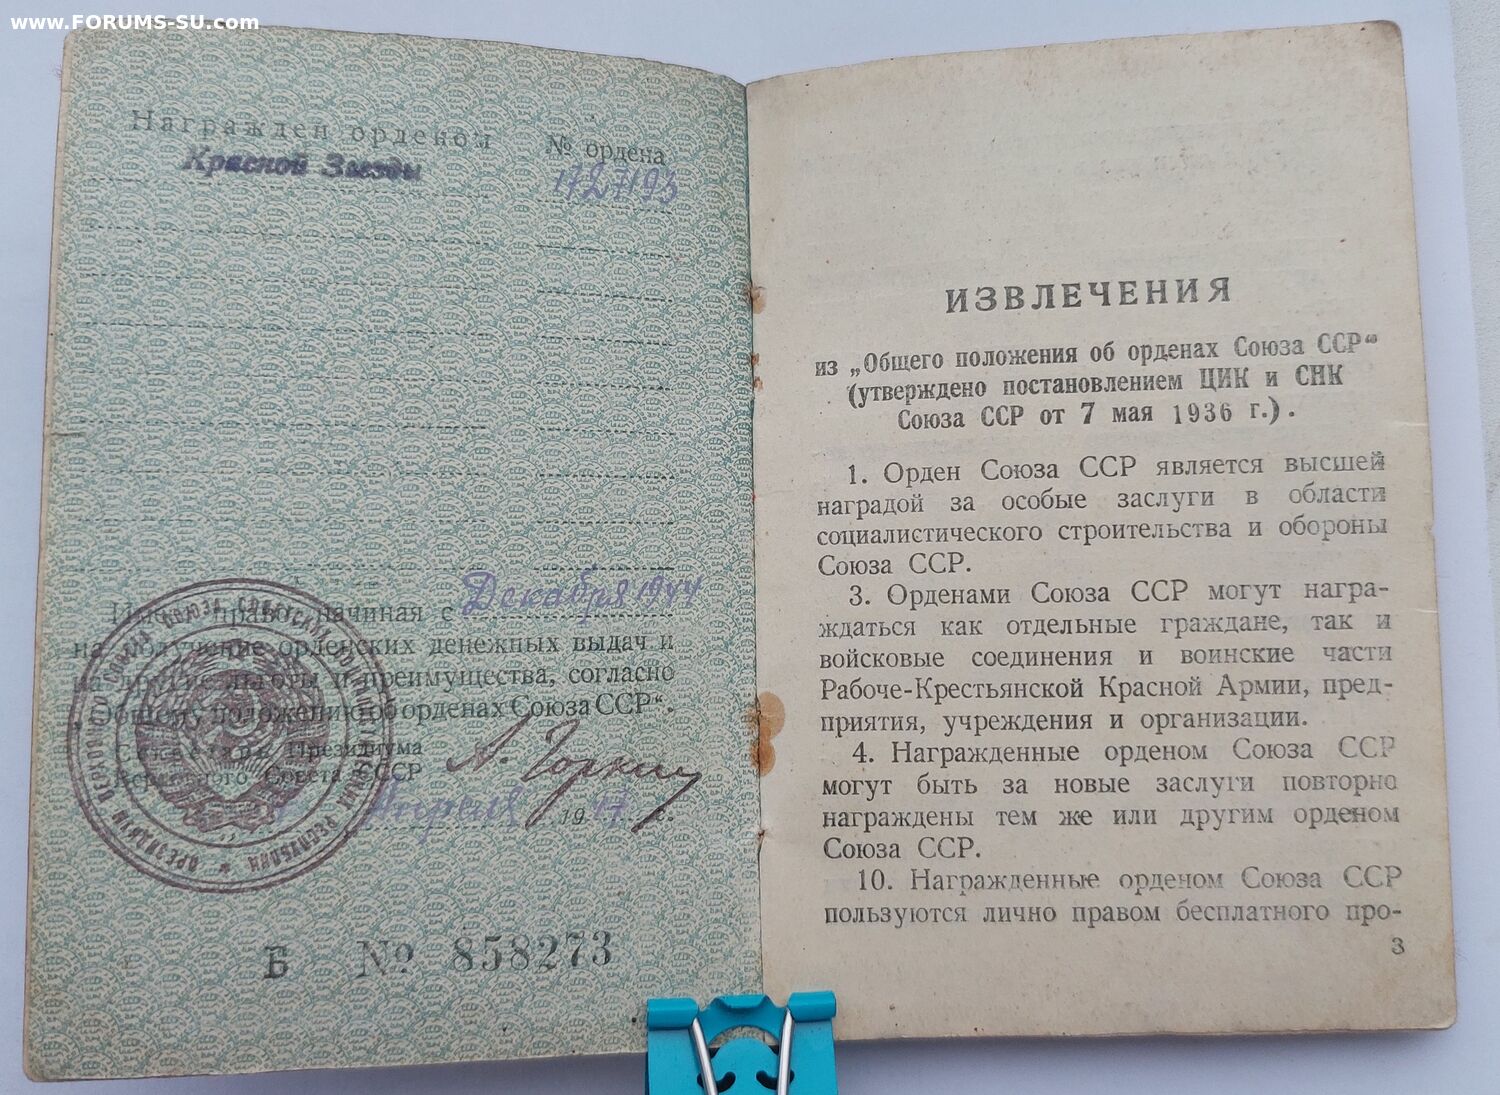 www.FORUMS-SU.com
Награжден орденом
№ ордена
Красной Звезды
1727193
Имеет право, начиная с Декабря 1944
на получение орденских денежных выдач и
на другие льготы и преимущества, согласно
„Общему положению об орденах Союза ССР“.
Секретарь Президиума
Верховного Совета СССР
А. Горкин
Апреля 1947 г.
Б № 858273
ИЗВЛЕЧЕНИЯ
из „Общего положения об орденах Союза ССР“
(утверждено постановлением ЦИК и СНК
Союза ССР от 7 мая 1936 г.).
1. Орден Союза ССР является высшей
наградой за особые заслуги в области
социалистического строительства и обороны
Союза ССР.
3. Орденами Союза ССР могут награ-
ждаться как отдельные граждане, так и
войсковые соединения и воинские части
Рабоче-Крестьянской Красной Армии, пред-
приятия, учреждения и организации.
4. Награжденные орденом Союза ССР
могут быть за новые заслуги повторно
награждены тем же или другим орденом
Союза ССР.
10. Награжденные орденом Союза ССР
пользуются лично правом бесплатного про-
3